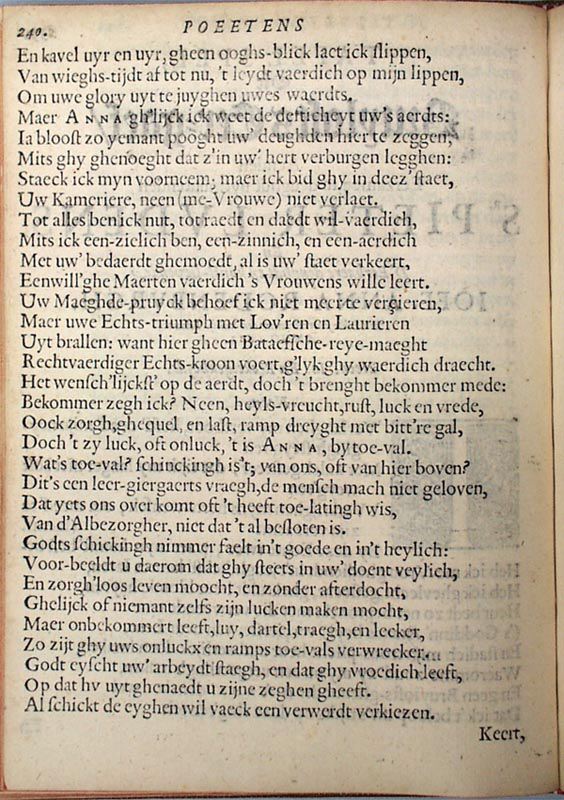 240. POEETENS
En kavel uyr en uyr, gheen ooghs-blick laet ick slippen,
Van wieghs-tijdt af tot nu, 't leydt vaerdich op mijn lippen,
Om uwe glory uyt te juyghen uwes waerdts.
Maer ANNA gh'lijck ick weet de defticheyt uw's aerdts:
Ia bloost zo yemant pooght uw' deughden hier te zeggen;
Mits ghy ghenoeght dat z'in uw' hert verburgen legghen:
Staeck ick myn voorneem; maer ick bid ghy in deez' staet,
Uw Kameriere, neen (me-Vrouwe) niet verlaet.
Tot alles ben ick nut, tot raedt en daedt wil-vaerdich,
Mits ick een-zielich ben, een-zinnich, en een-aerdich
Met uw' bedaerdt ghemoedt, al is uw' staet verkeert,
Eenwill'ghe Maerten vaerdich 's Vrouwens wille leert.
Uw Maeghde-pruyck behoef ick niet meer te vercieren,
Maer uwe Echts-triumph met Lov'ren en Laurieren
Uyt brallen: want hier gheen Bataefsche-reye-maeght
Rechtvaerdiger Echts-kroon voert, g'lyk ghy waerdich draecht.
Het wensch'lijckst' op de aerdt, doch 't brenght bekommer mede:
Bekommer zegh ick? Neen, heyls-vreucht, rust, luck en vrede,
Oock zorgh, ghequel, en last, ramp dreyght met bitt're gal,
Doch 't zy luck, oft onluck, 't is ANNA, by toe-val.
Wat's toe-val? schinckingh is't; van ons, oft van hier boven?
Dit's een leer-giergaerts vraegh, de mensch mach niet geloven,
Dat yets ons over komt oft 't heeft toe-latingh wis,
Van d'Albezorgher, niet dat 't al besloten is.
Godts schickingh nimmer faelt in't goede en in't heylich:
Voor-beeldt u daerom dat ghy steets in uw' doent veylich,
En zorgh'loos leven moocht, en zonder afterdocht,
Ghelijck of niemant zelfs zijn lucken maken mocht,
Maer onbekommert leeft, luy, dartel, traegh, en lecker,
Zo zijt ghy uws onluckx en ramps toe-vals verwrecker.
Godt eyscht uw' arbeydt staegh, en dat ghy vroedich leeft,
Op dat hy uyt ghenaedt u zijne zeghen gheeft.
Al schickt de eyghen wil vaeck een verwerdt verkiezen.
Keert,